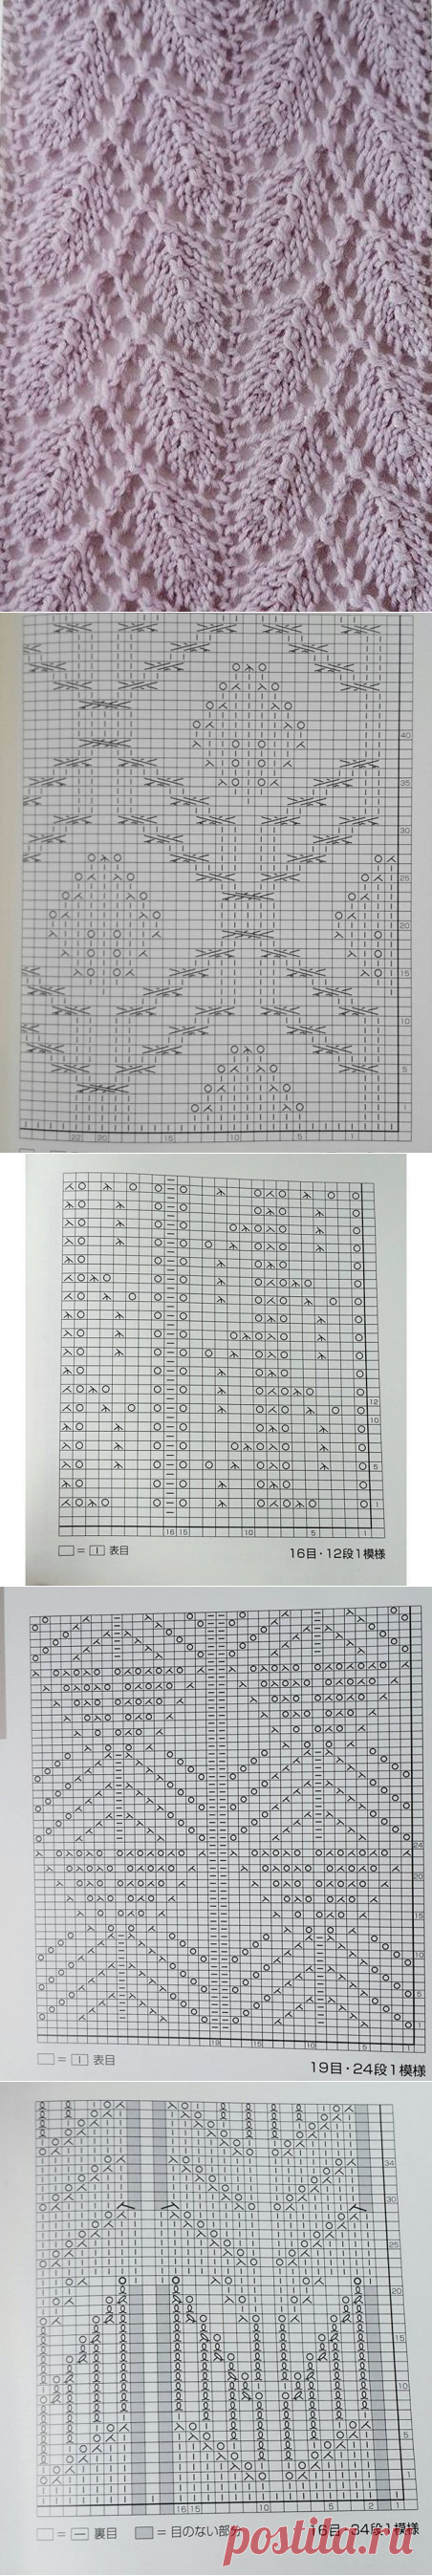 40
35
30
25
20
15
10
5
1
22 20 15 10 5 1
12
10
5
1
16 15 10 5 1
□ = | 表目
16目・12段1模様
24
20
15
10
5
1
19 15 10 5 1
□ = | 表目
19目・24段1模様
34
30
25
20
15
10
5
1
16 15 10 5 2 1
□ = 一 裏目 = 目のない部分
16目・34段1模様
postila.ru